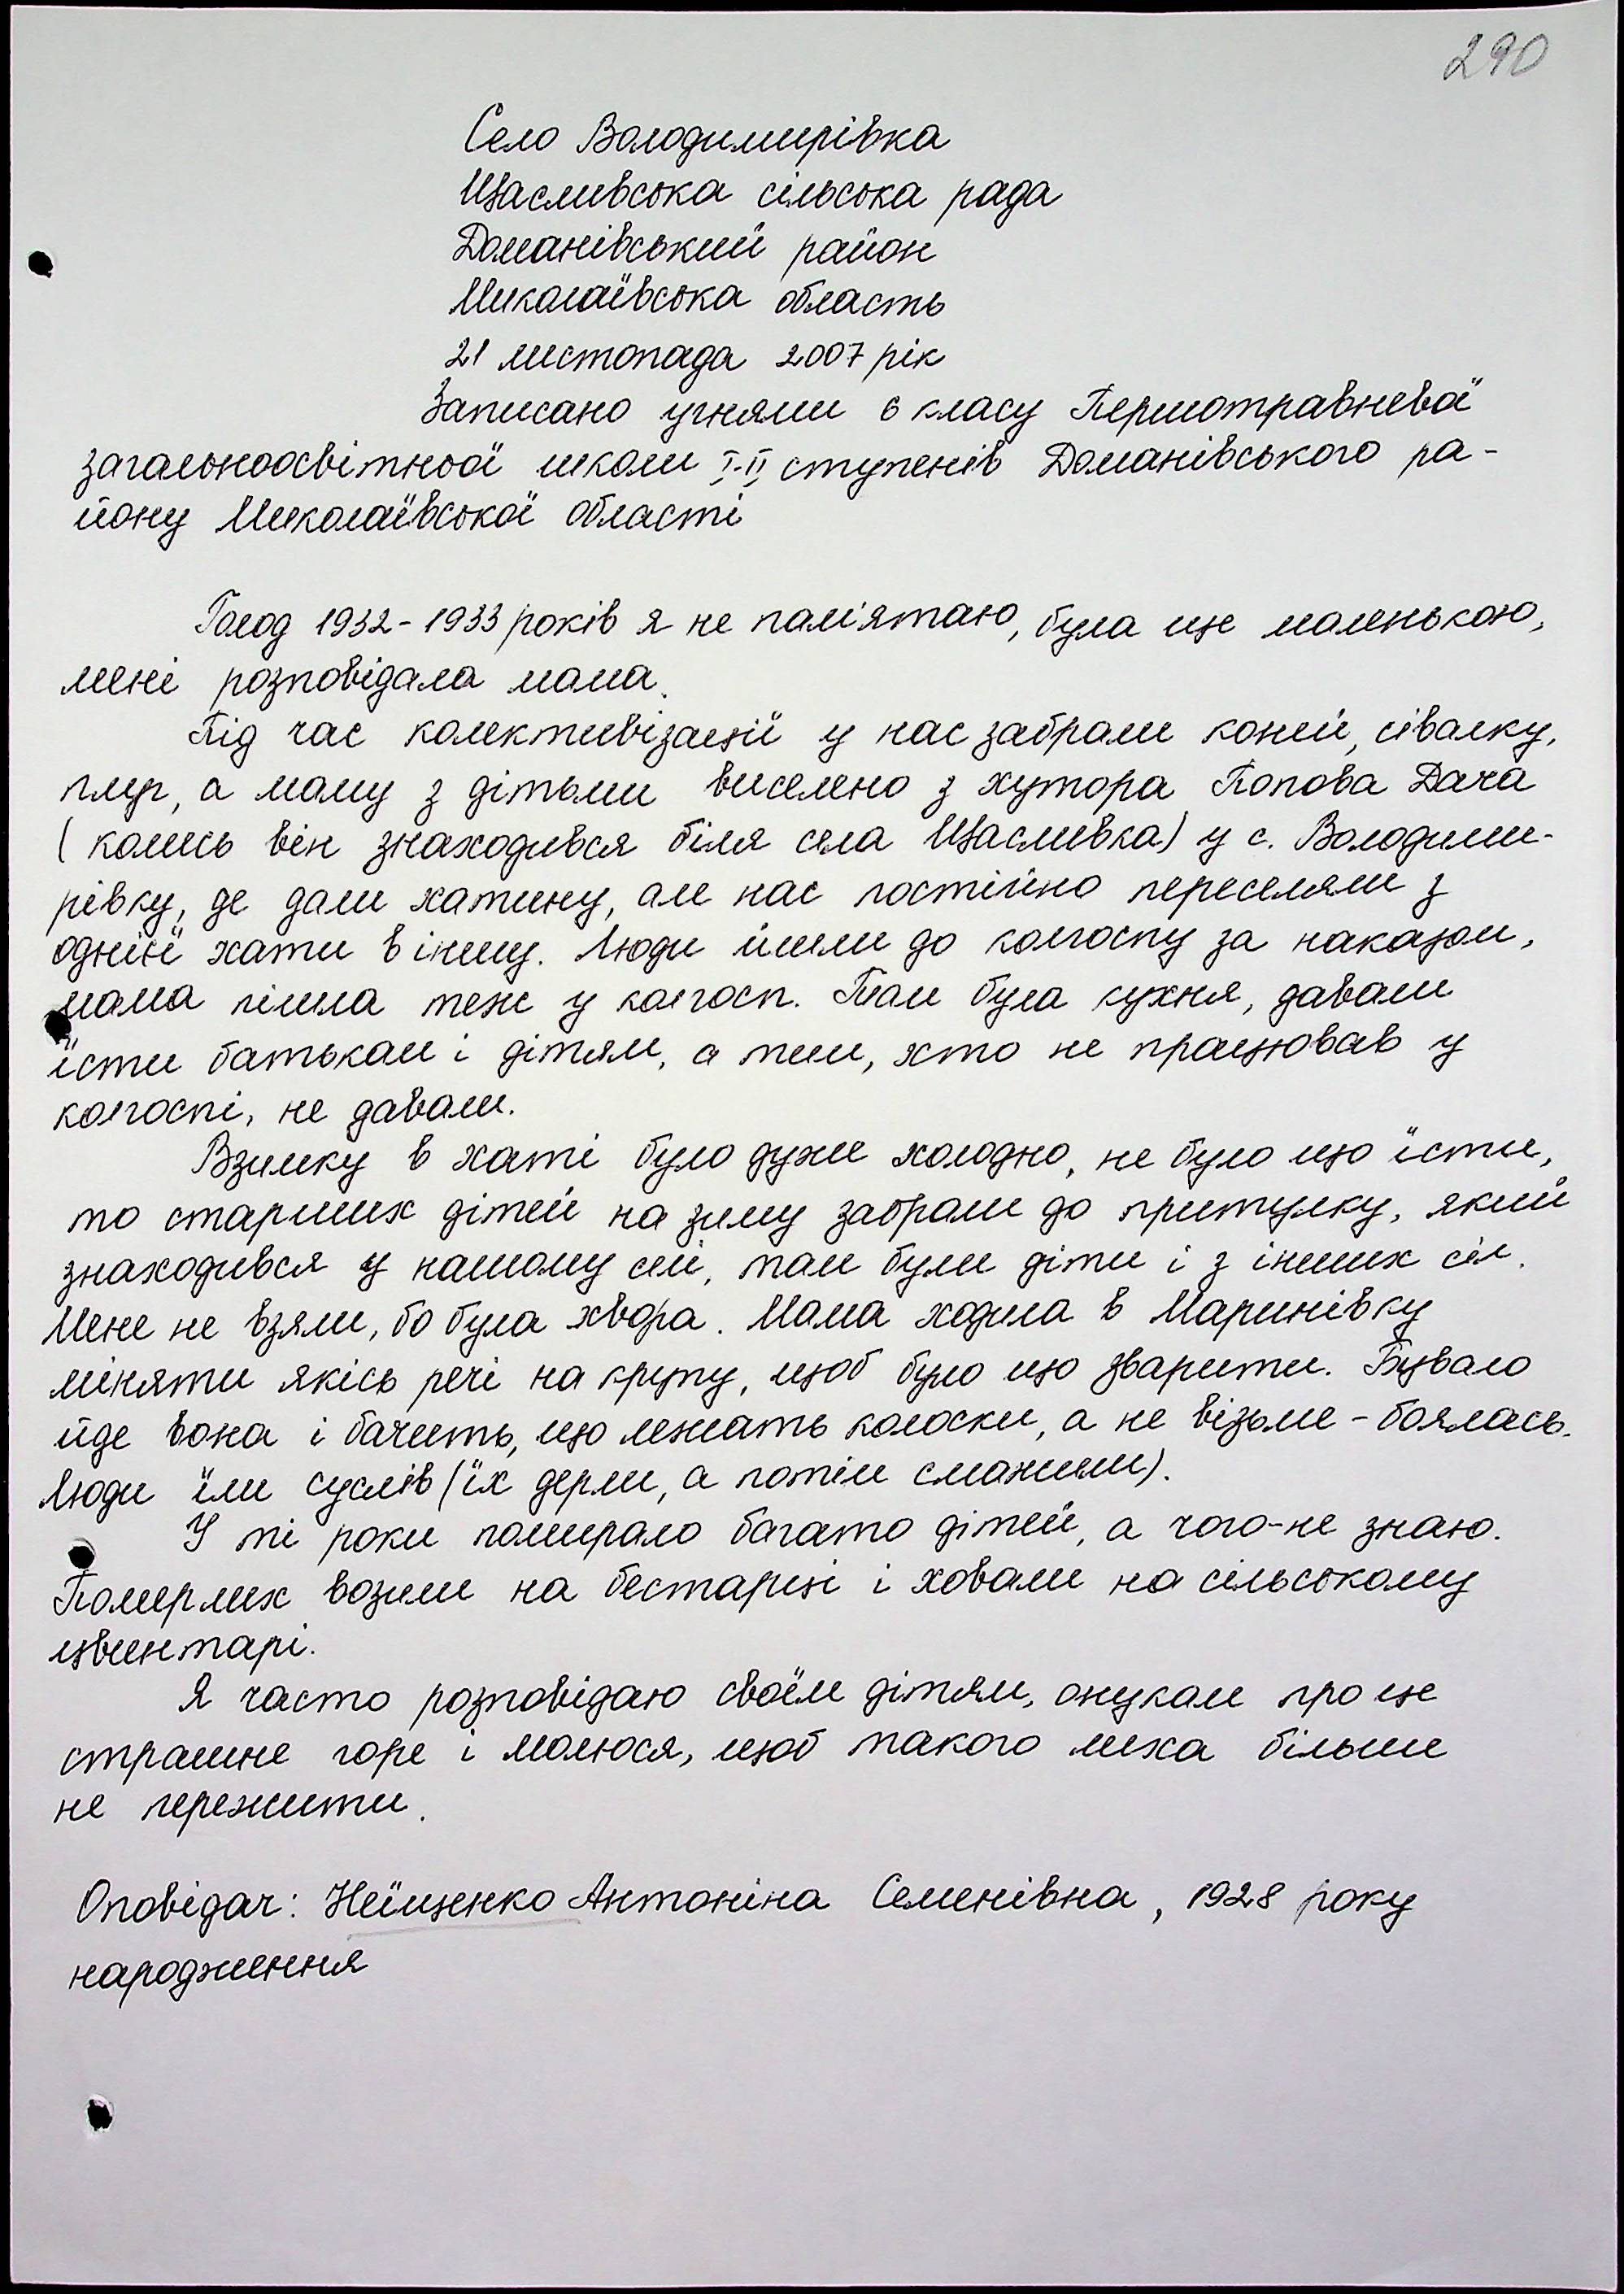 290
Село Володимирівка
Щасливська сільська рада
Доманівський район
Миколаївська область
21 листопада 2007 рік
Записано учнями 6 класу Першотравневої
загальноосвітньої школи I-II ступенів Доманівського ра-
йону Миколаївської області
Голод 1932-1933 років я не пам'ятаю, була ще маленькою,
мені розповідала мама.
Під час колективізації у нас забрали коней, сівалку,
плуг, а маму з дітьми виселено з хутора Попова Дача
(колись він знаходився біля села Щасливка) у с. Володими-
рівку, де дали хатину, але нас постійно переселяли з
однієї хати в іншу. Люди йшли до колгоспу за наказом,
мама пішла теж у колгосп. Там була кухня, давали
їсти батькам і дітям, а тим, хто не працював у
колгоспі, не давали.
Взимку в хаті було дуже холодно, не було що їсти,
то старших дітей на зиму забрали до притулку, який
знаходився у нашому селі, там були діти і з інших сіл.
Мене не взяли, бо була хвора. Мама ходила в Маринівку
міняти якісь речі на крупу, щоб було що зварити. Бувало
йде вона і бачить, що лежать колоски, а не візьме - боялась.
Люди їли суслів (їх дерли, а потім смажили).
У ті роки помирало багато дітей, а чого-не знаю.
Померлих возили на бестарці і ховали на сільському
цвинтарі.
Я часто розповідаю своїм дітям, онукам про це
страшне горе і молюся, щоб такого лиха більше
не пережити.
Оповідач: Неїщенко Антоніна Семенівна, 1928 року
народження